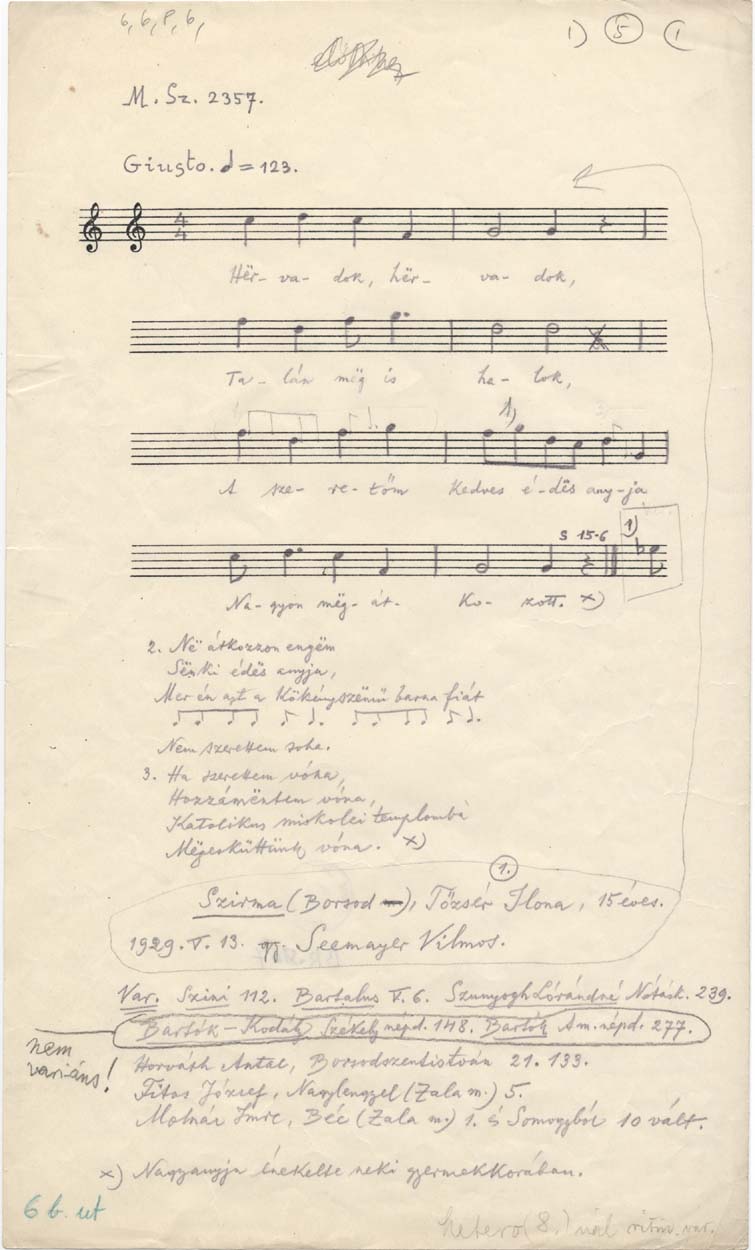 6, 6, 8, 6,
1) 5 (1
M. Sz. 2357.
Giusto. = 123.
4 4
Hër- va- dok, hër- va- dok,
Ta- lán még is ha- lok,
1)
A sze- re- tőm kedves é- dës any- ja
S 15-6 1)
Na- gyon mëg- át- ko- zott. x)
2. Në átkozzon engëm
Sënki édës anyja,
Mer én azt a kökényszëmű barna fiát
Nem szerettem soha.
3. Ha szerettem vóna,
Hozzámëntem vóna,
Katolikus miskolci templomba
Mëgesküttünk vóna. x)
1.
Szirma (Borsod), Tőzsér Ilona, 15 éves.
1929. V. 13. gy. Seemayer Vilmos.
Var. Szini 112. Bartalus V. 6. Szunyogh Lórándné Nótásk. 239.
Bartók – Kodály Székely népd. 148. Bartók A m. népd. 277.
nem
variáns!
Horváth Antal, Borsodszentistván 21. 133.
Titos József, Naglengyel (Zala m.) 5.
Molnár Imre, Béc (Zala m.) 1. s Somogyból 10 vált.
x) Nagyanyja énekelte neki gyermekkorában.
6 b. ut
hetero (8.) nál ritm. var.